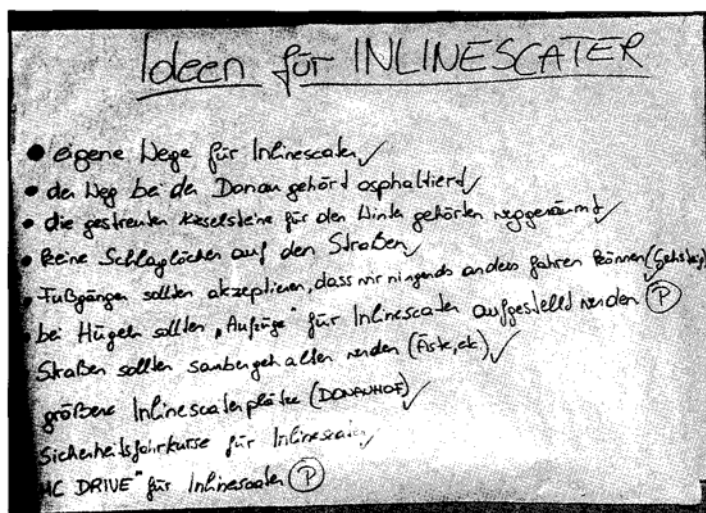 Ideen für INLINESCATER
• eigene Wege für Inlinescater ✓
• der Weg bei der Donau gehört asphaltiert ✓
• die gestreuten Kieselsteine für den Winter gehörten weggeräumt ✓
• keine Schlaglöcher auf den Straßen ✓
• Fußgänger sollten akzeptieren, dass wir nirgends anders fahren können (Gehsteig) ✓
• bei Hügeln sollten „Aufzüge" für Inlinescater aufgestellt werden (P)
Straßen sollten saubergehalten werden (Äste, etc.) ✓
größere Inlinescaterplätze (DONAUHOF) ✓
Sicherheitsfahrkurse für Inlinescater ✓
MC DRIVE" für Inlinescater (P)